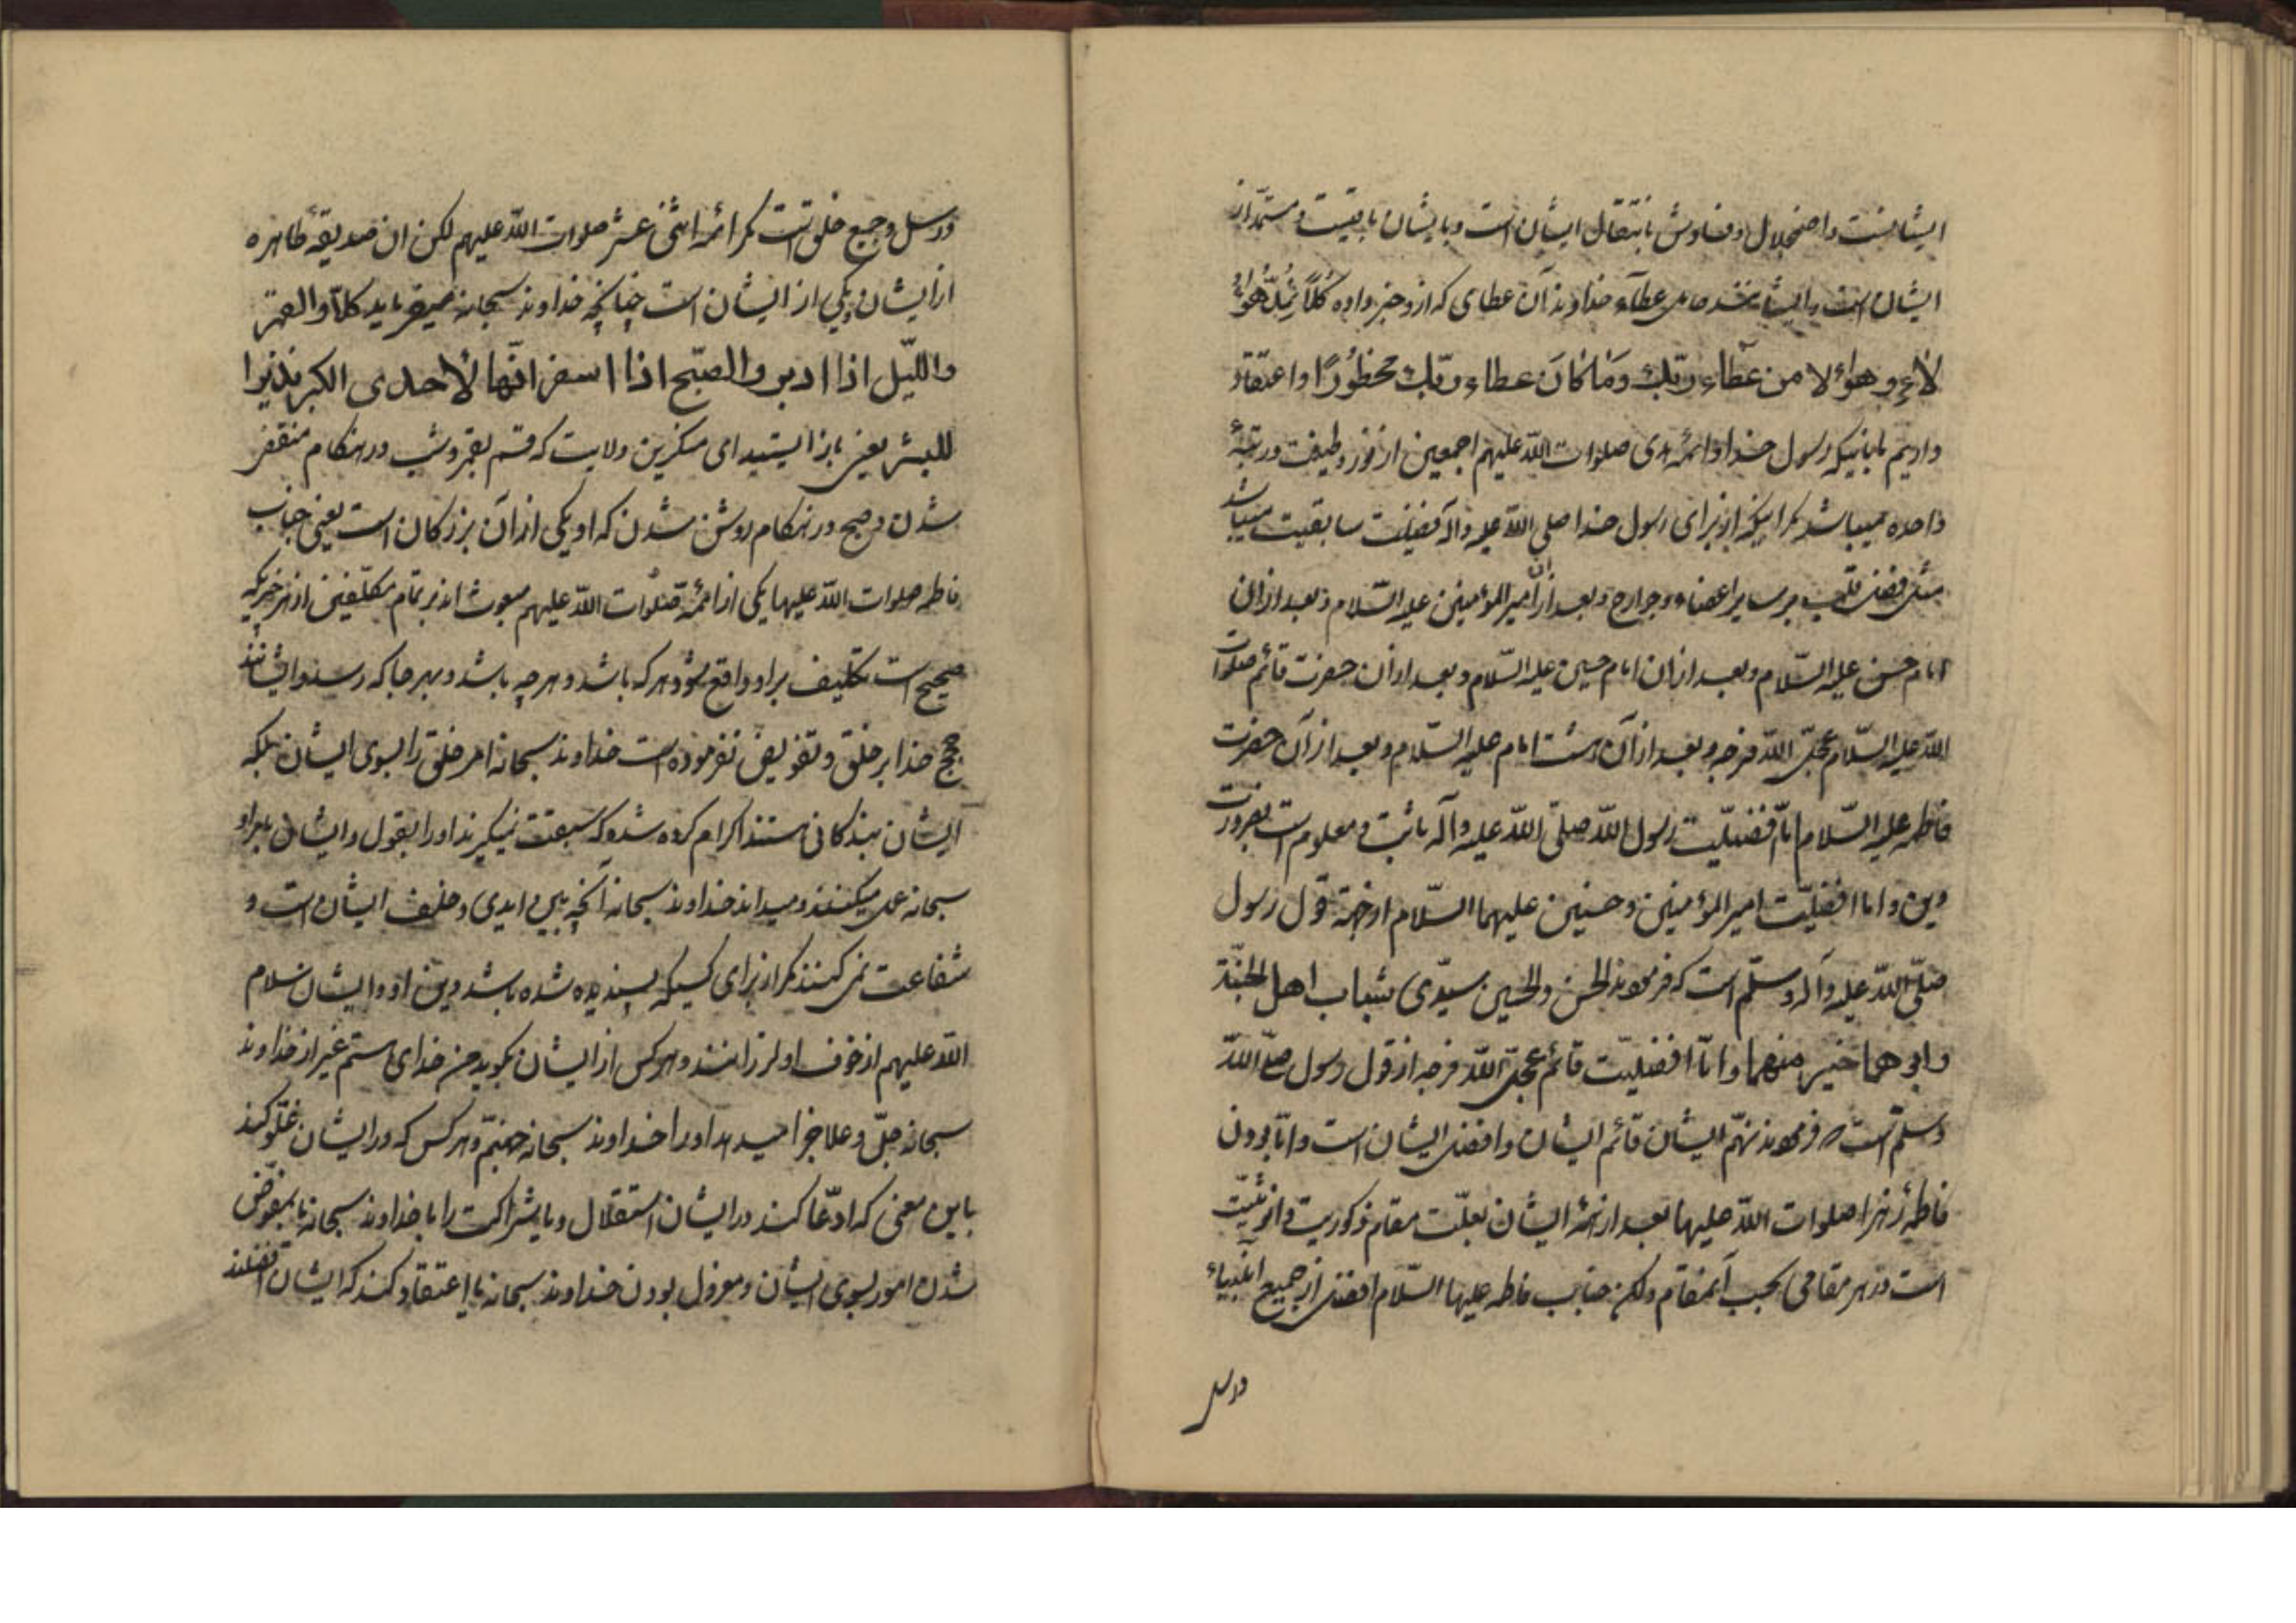 ایشانست و اضمحلال و فناوش بانتقال ایشان است و بایشان باقیست و مستمد از
ایشان است و ایشانند حامل عطآء خداوند آن عطای که از وجز داده كُلّاً نُمِدُّ هٰؤُ
لاءِ وهٰؤلاء من عَطاءِ ربّك وَمٰا كٰانَ عطاء ربّك محظورًا و اعتقاد
داریم باینکه رسول خدا و ائمه هدی صلوات اللّه علیهم اجمعین از نور و طینت و رتبهٔ
واحده میباشد مگر اینکه از برای رسول خدا صلی اللّه علیه و آله فضیلت سابقیت میباشد
مثل فضل قلب بر سایر اعضاء و جوارح و بعد از آن امیر المؤمنین علیه السّلام و بعد از ان
امام حسن علیه السّلام و بعد از ان امام حسین علیه السّلام و بعد از ان حضرت قائم صلوات
اللّه علیه السّلام عجّل اللّه فرجه و بعد از آن هشت امام علیه السّلام و بعد از آن حضرت
فاطمه علیه السّلام امّا فضیلّت رسول اللّه صلّی اللّه علیه و آله ثابت و معلوم است بضرورت
دین و اما افضلیّت امیر المؤمنین و حسنین علیهما السّلام از جهة قول رسول
صلّی اللّه علیه و آله و سلّم است که فرمودند الحسن والحسین سیدّی شباب اهل الجنّة
وابوهما خیر منهما و امّا افضلیّت قائم عجّل اللّه فرجه از قول رسول صلّی اللّه
و سلّم است که فرمودند نهّم ایشان قائم ایشان و افضل ایشان است و امّا بودن
فاطمهٔ زهرا صلوات اللّه علیها بعد از همهٔ ایشان بعلّت مقام ذکوریت و انوثیّت
است در هر مقامی بحسب آنمقام ولکن جناب فاطمه علیها السّلام افضل از جمیع انبیاء
ورسل
ورسل و جمیع خلق است مگر ائمه اثنی عشر صلوات اللّه علیهم لکن ان صدیقهٔ طاهره
از ایشان و یکی از ایشان است چنانچه خداوند سبحانه میفرماید كلّا والقمر
واللّیل اذا ادبر والصبّح اذا اسفر انّها لأحدی الكبر نذیرا
للبشر یعنی باز ایستید ای منکرین ولایت که قسم بقمر و شب در هنکام منقضی
شدن و صبح در هنکام روشن شدن که او یکی از آن بزرکان است یعنی جناب
فاطمه صلوات اللّه علیها یکی از ائمه صلوات اللّه علیهم مبعوث اند بر تمام مکلّفین از هر چیزیکه
صحیح است تکلیف بر او واقع شود هر که باشد و هر چه باشد و بهر جا که رسد و ایشانند
حجج خدا بر خلق و تفویض نفرموده است خداوند سبحانه امر خلق را بسوی ایشان بلکه
ایشان بندکانی هستند اکرام کرده شده که سبقت نمیکیرند او را بقول و ایشان بامر او
سبحانه عمل میکنند و میداند خداوند سبحانه آنچه بین ایدی و خلف ایشان است و
شفاعت نمی کنند مگر از برای کسیکه پسندیده شده باشد دین او و ایشان سلام
اللّه علیهم از خوف او لرزانند و هر کس از ایشان بکوید من خدای هستم غیر از خداوند
سبحانه جلّ و علا جزا میدهد او را خداوند سبحانه جهنّم و هر کس که در ایشان غلّو کند
باین معنی که ادّعا کند در ایشان استقلال و یا شراکت را با خداوند سبحانه یا بمفوّض
شدن امور بسوی ایشان و معزول بودن خداوند سبحانه یا اعتقاد کند که ایشان افضلند